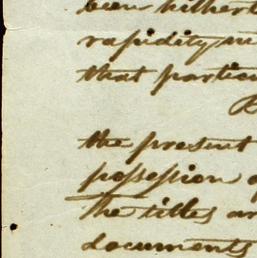 been hithert
rapidity in
that particu
the present
possession o
The titles ar
documents